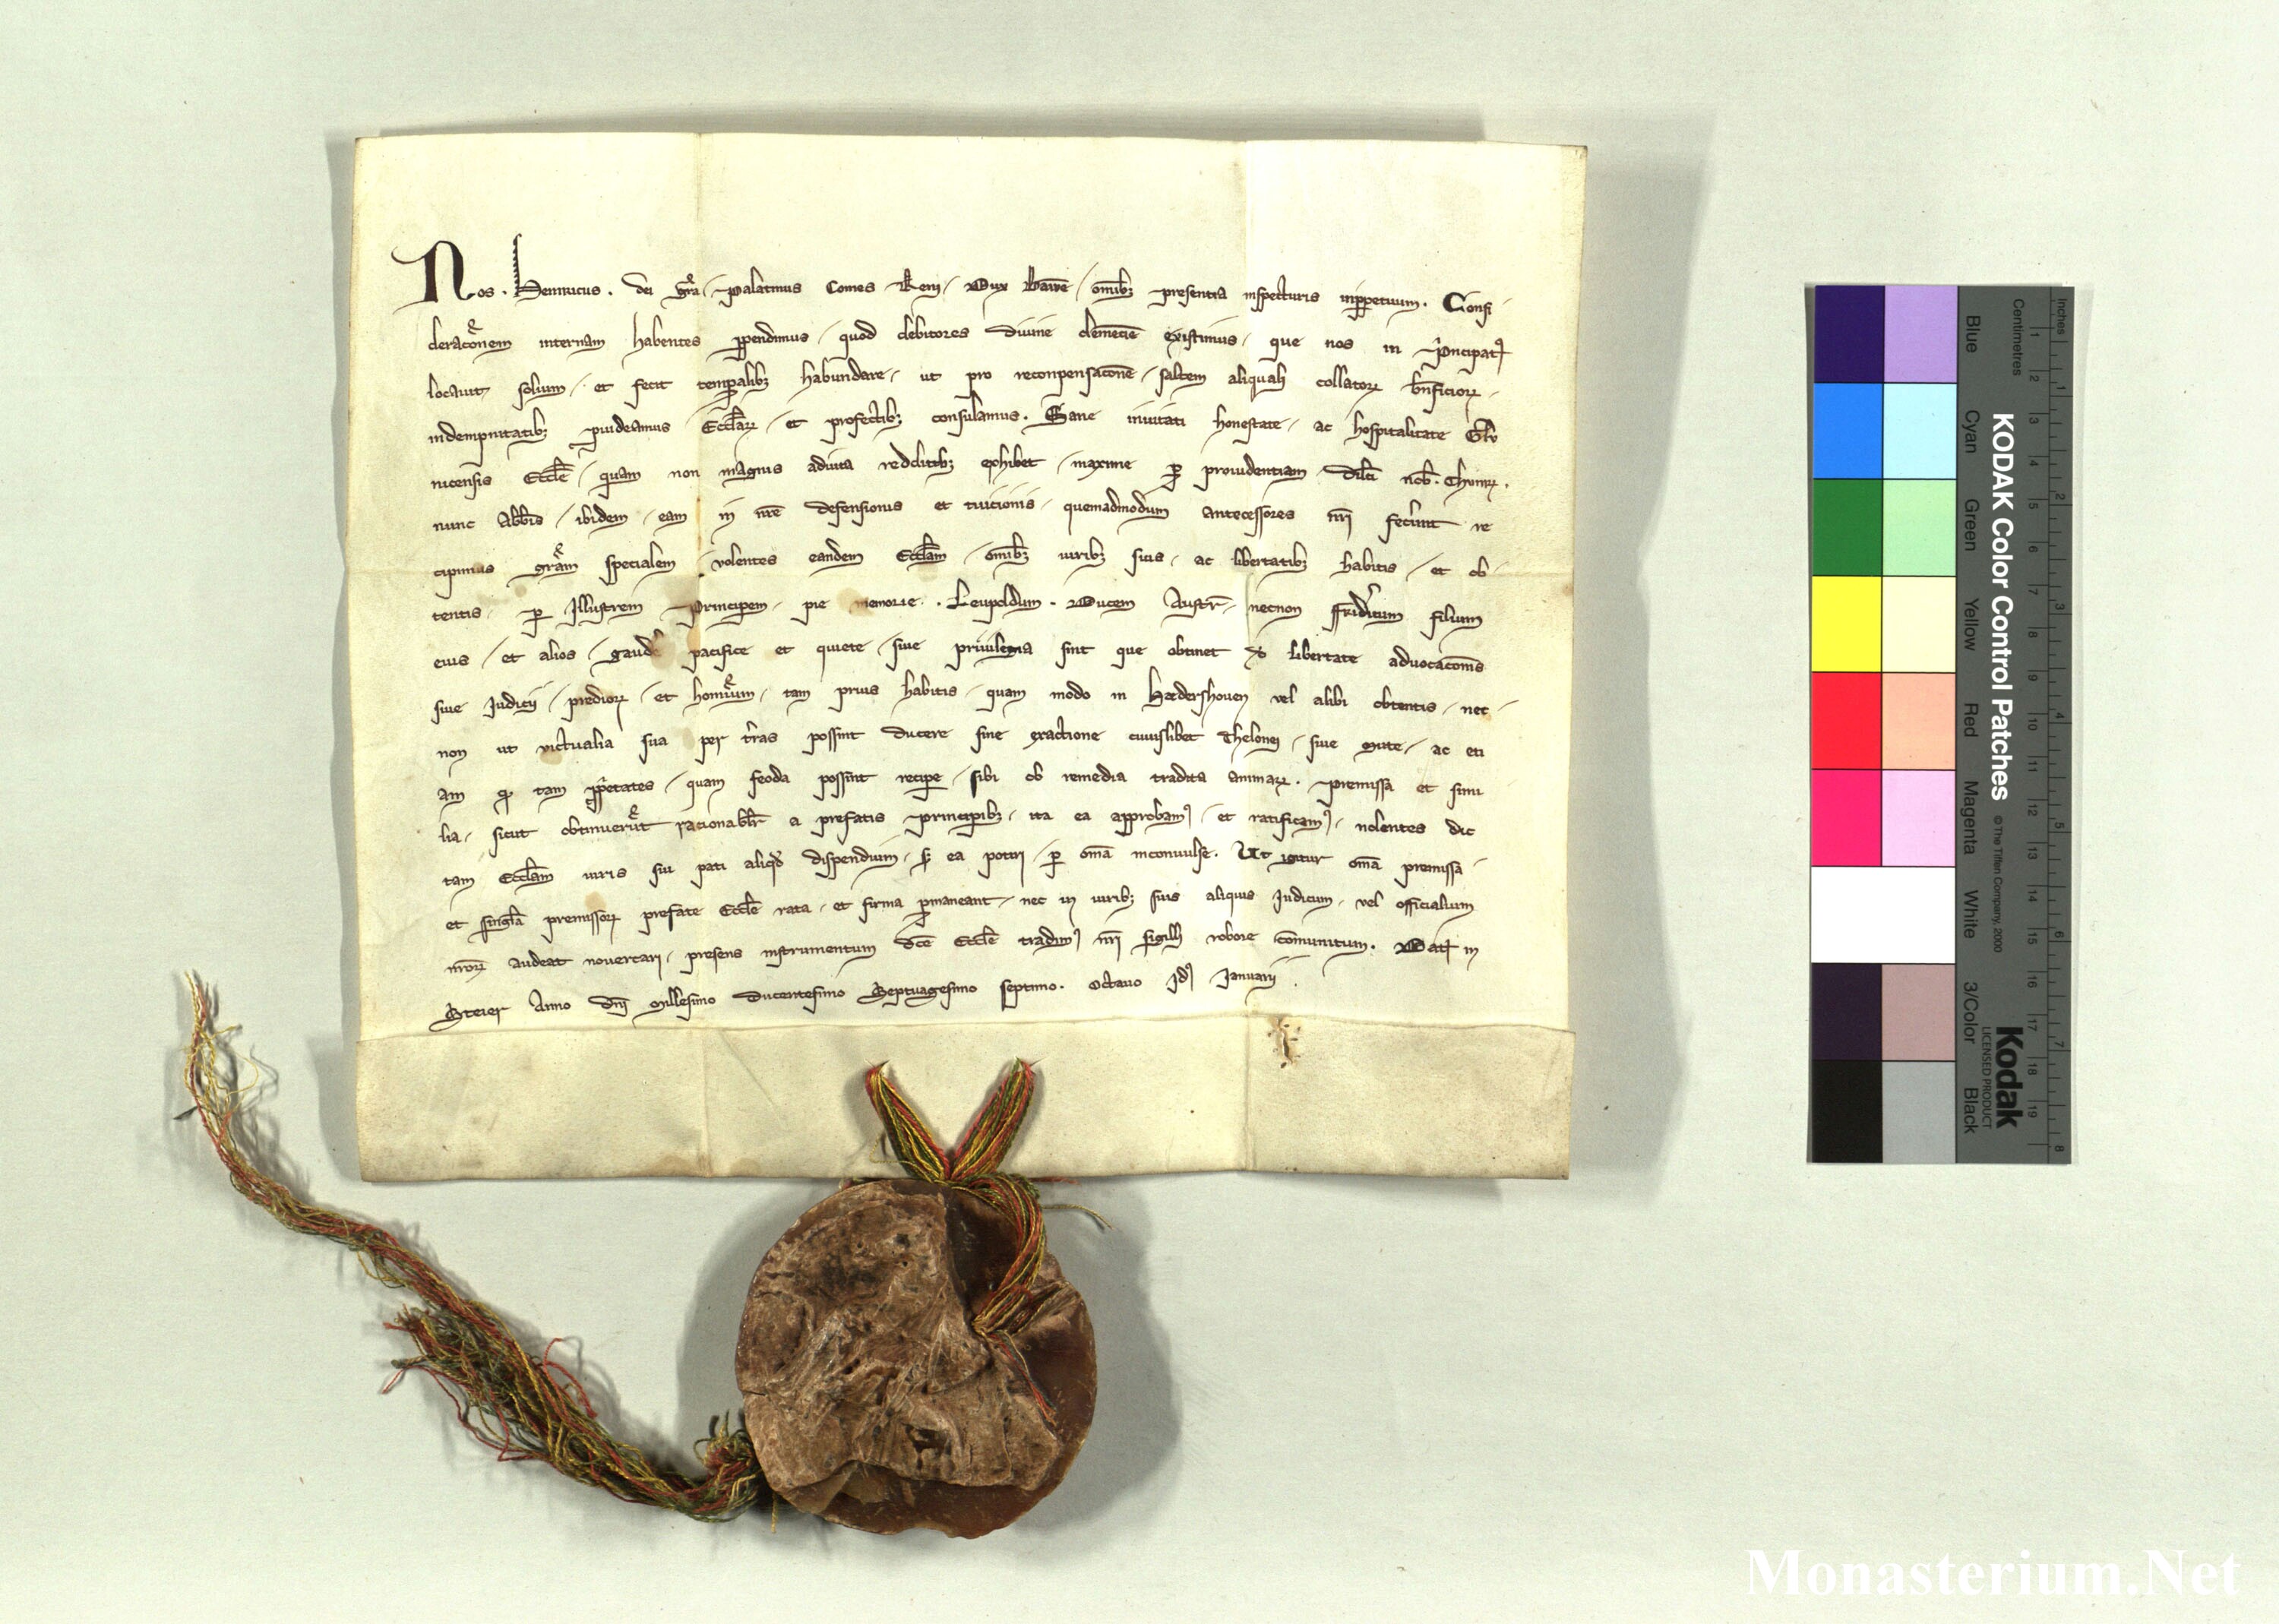 Nos . Heinricus . dei gr̃a / Palatinus Comes Reni / Dux Bawã / om̃ibꝫ presentia inspecturis inꝑpetuum . Consi
deratõnem internam habentes ꝑpendimus / quod debitores diuine clem̃ẽtie existimus / que nos in Pͥncipatꝰ
locauit solium / et fecit temꝑalibꝫ habundare / ut pro reconpensacõne / saltem aliquali collatoꝝ bñficioꝝ /
indempnitatibꝫ ꝓuideamus Eccl̃iaꝝ / et profectibꝫ consulamus . Sane inuitati honestate / ac hospitalitate Glu
nicensis Eccl̃e / quam non magnis adiuta redditibꝫ exhibet / maxime ꝑ prouidentiam dil̃ti nob̃ . Chunꝝ .
nunc Abb̃is / ibidem / eam in nr̃e defensionis et tuicionis / quemadmodum antecessores nr̃i fecer̃unt re
cipimus gr̃am specialem / volentes eandem Eccl̃iam / om̃ibꝫ iuribꝫ suis / ac libertatibꝫ habitis / et ob
tentis / ꝑ Illustrem Principem / pie memorie . Leupoldum . Ducem Austr̃ / necnon ffrider̃icum filium
eius / et alios / gauder̃e pacifice et quiete / siue priuilegia sint que obtinet de libertate aduocacõnis
siue Judicij / predioꝝ / et homĩum / tam prius habitis / quam modo in Hædershouen vel alibi obtentis / nec
non ut victualia sua per tr̃as possint ducere sine exactione cuiuslibet Thelonej / siue Mute / ac eti
am ꝙ tam ꝓpͥetates / quam feoda possint reciꝑe / sibi ob remedia tradita animaꝝ . Premissa et simi
lia / sicut obtinuerũt racionabilr̃ a prefatis principibꝫ / ita ea approbamꝰ / et ratificamꝰ / nolentes dic
tam Eccl̃iam iuris sui pati aliqđ dispendium / sꝫ ea potiri / ꝑ om̃a inconuulse . Ut igitur om̃a premissa
et singl̃a premissoꝝ prefate Eccl̃e rata / et firma ꝑmaneant / nec in iuribꝫ suis aliquis Judicum / vel officialium
nr̃oꝝ audeat nouercari / presens instrumentum dc̃e Eccl̃e tradimꝰ nr̃i sigilli robore com̃unitum . Datꝫ in
Steier Anno dñi Millesimo Ducentesimo Septuagesimo septimo . Octauo Jdꝰ Januarij .
KODAK Color Control Patches © The Tiffen Company, 2000
Kodak
LICENSED PRODUCT
Inches
Centimetres
1 2 3 4 5 6 7 8
1 2 3 4 5 6 7 8 9 10 11 12 13 14 15 16 17 18 19
Blue Cyan Green Yellow Red Magenta White 3/Color Black
Monasterium.Net